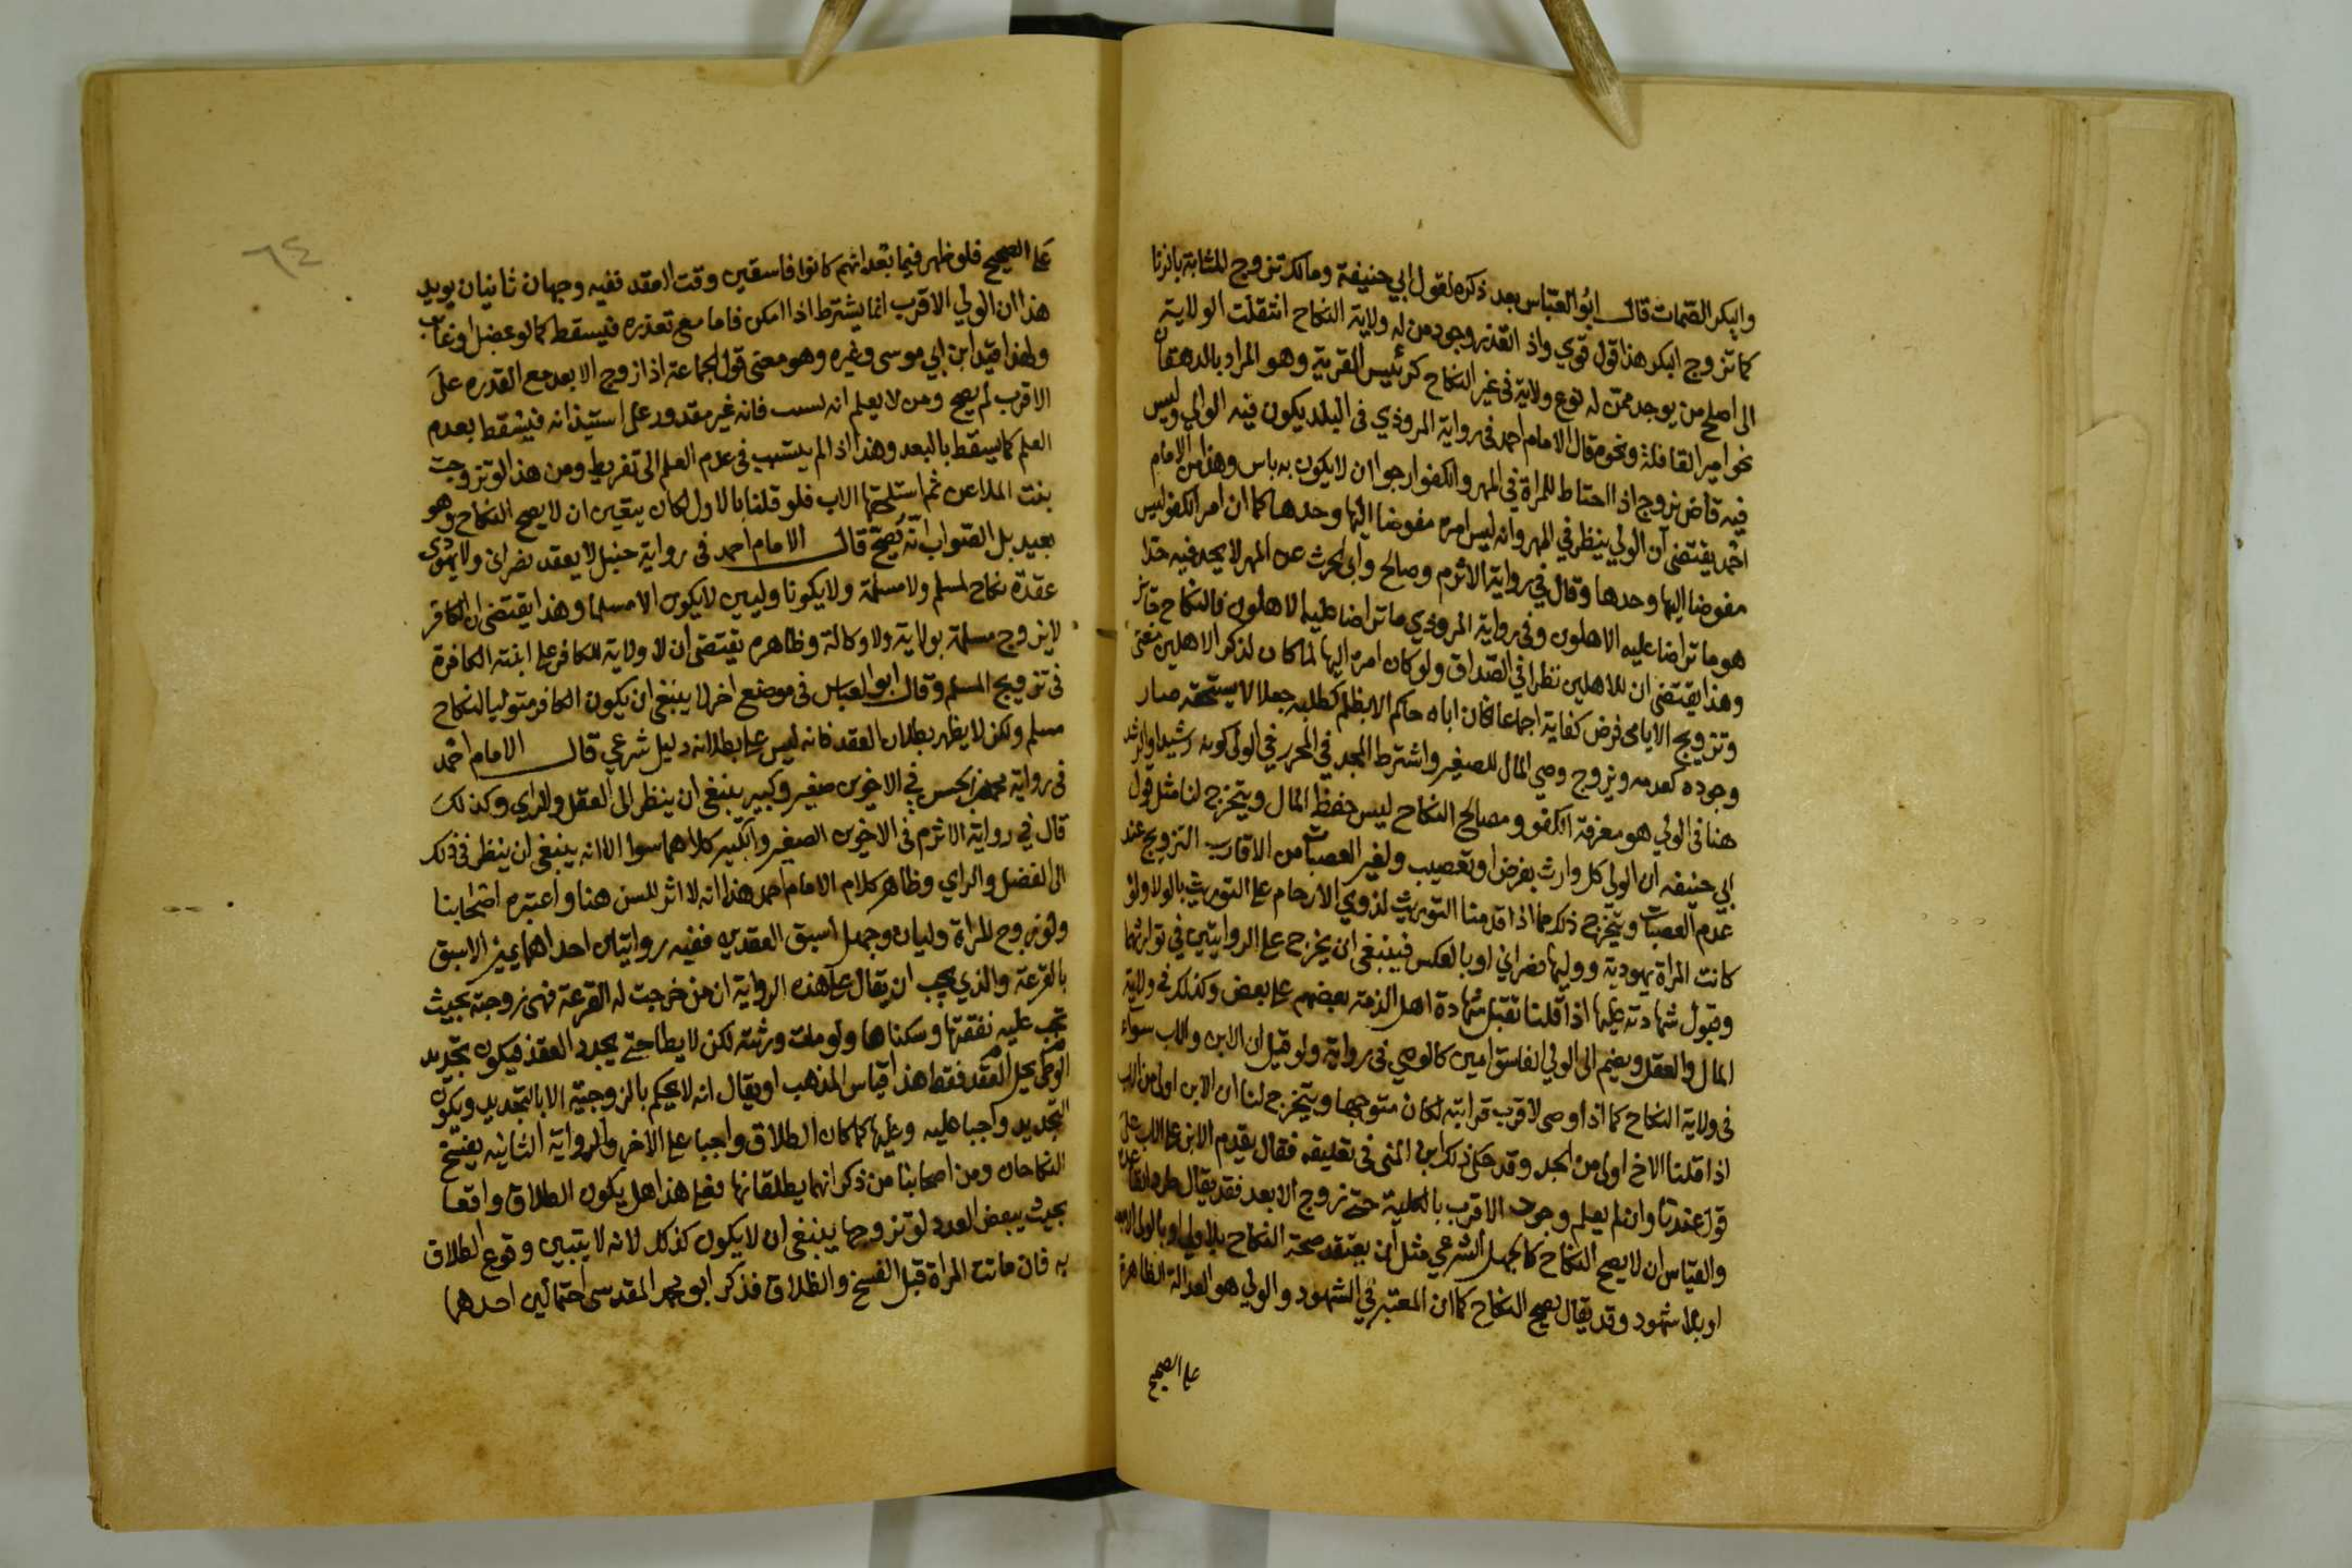 وابكر الصمات قال ابو العباس بعد ذكره لقول ابي حنيفة ومالك تزوج المثابة بالزنا
كما تزوج البكر هذا قول قوي واذا تعذر وجود من له ولاية النكاح انتقلت الولاية
الى اصلح من يوجد ممن له نوع ولاية في غير النكاح كرئيس القرية وهو المراد بالدهقان
نحو امير القافلة ونحوه قال الامام احمد في رواية المروذي في البلد يكون فيه الوالي وليس
فيه قاض يزوج اذا احتاط للمراة في المهر والكفو ارجوا ان لا يكون به باس وهذا من الامام
احمد يقتضي ان الولي ينظر في المهر وانه ليس امره مفوضا اليها وحدها كما ان امر الكفو ليس
مفوضا اليها وحدها وقال في رواية الاثرم وصالح وابي الحرث عن المهر لا يجد فيه حدا
هو ما تراضا عليه الاهلون وفي رواية المروذي ما تراضا عليه الاهلون فالنكاح جائز
وهذا يقتضي ان للاهلين نظرا في الصداق ولو كان امره اليها لما كان لذكر الاهلين معنى
وتزويج الايامى فرض كفاية اجماعا فان اباه حاكم الا بظلم كطلبه جعلا لا يستحقه صار
وجوده كعدمه ويزوج وصي المال للصغير واشترط المجد في المحرر في الولي كونه رشيدا والرشد
هنا في الولي هو معرفة الكفو ومصالح النكاح ليس حفظ المال ويتخرج لنا مثل قول
ابي حنيفه ان الولي كل وارث بفرض او تعصيب ولغير العصبات من الاقارب التزويج عند
عدم العصبات ويتخرج ذلك مما اذا قدمنا التوريث لذوي الارحام على التوريث بالولا ولو
كانت المراة يهودية ووليها نصراني او بالعكس فينبغي ان يخرج على الروايتين في توارثهما
وقبول شهادته عليها اذا قلنا تقبل شهادة اهل الذمة بعضهم على بعض وكذلك في ولاية
المال والعقل ويضم الى الولي الفاسق امين كالوصي في رواية ولو قيل ان الابن والاب سواء
في ولاية النكاح كما اذا اوصى لاقرب قرابته لكان متوجها ويتخرج لنا ان الابن اولى من الاب
اذا قلنا الاخ اولى من الجد وقد حكى ذلك ابن المنى في تعليقه فقال يقدم الابن على الاب على
قول عندنا وان لم يعلم وجود الاقرب بالكلية حتى زوج الابعد فقد يقال
والقياس ان لا يصح النكاح كالجهل الشرعي مثل ان يعتقد صحة النكاح بلا ولي او بالولي
او بلا شهود وقد يقال يصح النكاح كما ان المعتبر في الشهود والولي هو العدالة الظاهرة
على الصحيح
٦٤
على الصحيح فلو ظهر فيما بعد انهم كانوا فاسقين وقت العقد ففيه وجهان ثانيان يويد
هذا ان الولي الاقرب انما يشترط اذا امكن فاما مع تعذره فيسقط كما لو عضل او غاب
ولهذا قيد ابن ابي موسى وغيره وهو معنى قول الجماعة اذا زوج الابعد مع القدره على
الاقرب لم يصح ومن لا يعلم انه نسيب فانه غير مقدور على استيذانه فيسقط بعدم
العلم كما يسقط بالبعد وهذا اذا لم ينتسب في عدم العلم الى تفريط ومن هذا لو تزوجت
بنت الملاعن ثم استلحقها الاب فلو قلنا بالاول لكان يتعين ان لا يصح النكاح وهو
بعيد بل الصواب انه يصح قال الامام احمد في رواية حنبل لا يعقد نصراني ولا يهودي
عقدة نكاح لمسلم ولا مسلمة ولا يكونا وليين لا يكون الا مسلما وهذا يقتضي ان الكافر
لا يزوج مسلمة بولاية ولا وكالة وظاهره يقتضي ان لا ولاية للكافر على ابنته الكافرة
في تزويج المسلم وقال ابو العباس في موضع اخر لا ينبغي ان يكون الكافر متوليا لنكاح
مسلم ولكن لا يظهر بطلان العقد فانه ليس على بطلانه دليل شرعي قال الامام احمد
في رواية محمد بن الحسن في الاخوين صغير وكبير ينبغي ان ينظر الى العقل والراي وكذلك
قال في رواية الاثرم في الاخوين الصغير والكبير كلاهما سوا الا انه ينبغي ان ينظر في ذلك
الى الفضل والراي وظاهر كلام الامام احمد هذا انه لا اثر للسن هنا واعتبره اصحابنا
ولو زوج المراة وليان وجهل اسبق العقدين ففيه روايتان احداهما يميز الاسبق
بالقرعة والذي يجب ان يقال على هذه الرواية ان من خرجت له القرعة فهي زوجته بحيث
تجب عليه نفقتها وسكناها ولو مات ورثته لكن لا يطا حتى يجدد العقد فيكون تجديد
العقد لحل الوطى فقط هذا قياس المذهب او يقال انه لا يحكم بالزوجية الا بالتجديد ويكون
التجديد واجبا عليه وعليها كما كان الطلاق واجبا على الاخر والرواية الثانيه يفسخ
النكاحان ومن اصحابنا من ذكر انهما يطلقانها فعلى هذا هل يكون الطلاق واقعا
بحيث ينقص العدد لو تزوجها ينبغي ان لا يكون كذلك لانه لا يتبين وقوع الطلاق
به فان ماتت المراة قبل الفسخ والطلاق فذكر ابو محمد المقدسي احتمالين احدهما